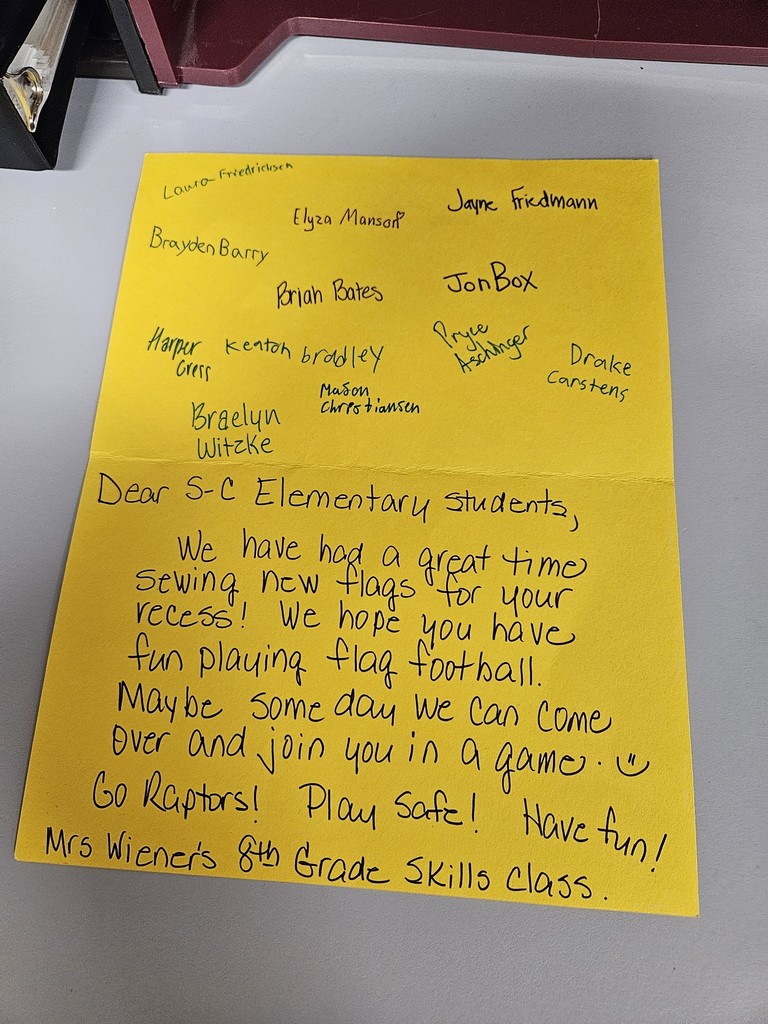 Laura Friedrichsen
Elyza Manson
Jayne Friedmann
Brayden Barry
Briah Bates
Jon Box
Harper
Cress
Keaton bradley
Pryce
Aschinger
Drake
Carstens
Mason
Christiansen
Braelyn
Witzke
Dear S-C Elementary students,
We have had a great time
sewing new flags for your
recess! We hope you have
fun playing flag football.
Maybe some day we can come
over and join you in a game.
Go Raptors! Play safe! Have fun!
Mrs Wiener's 8th Grade Skills class.